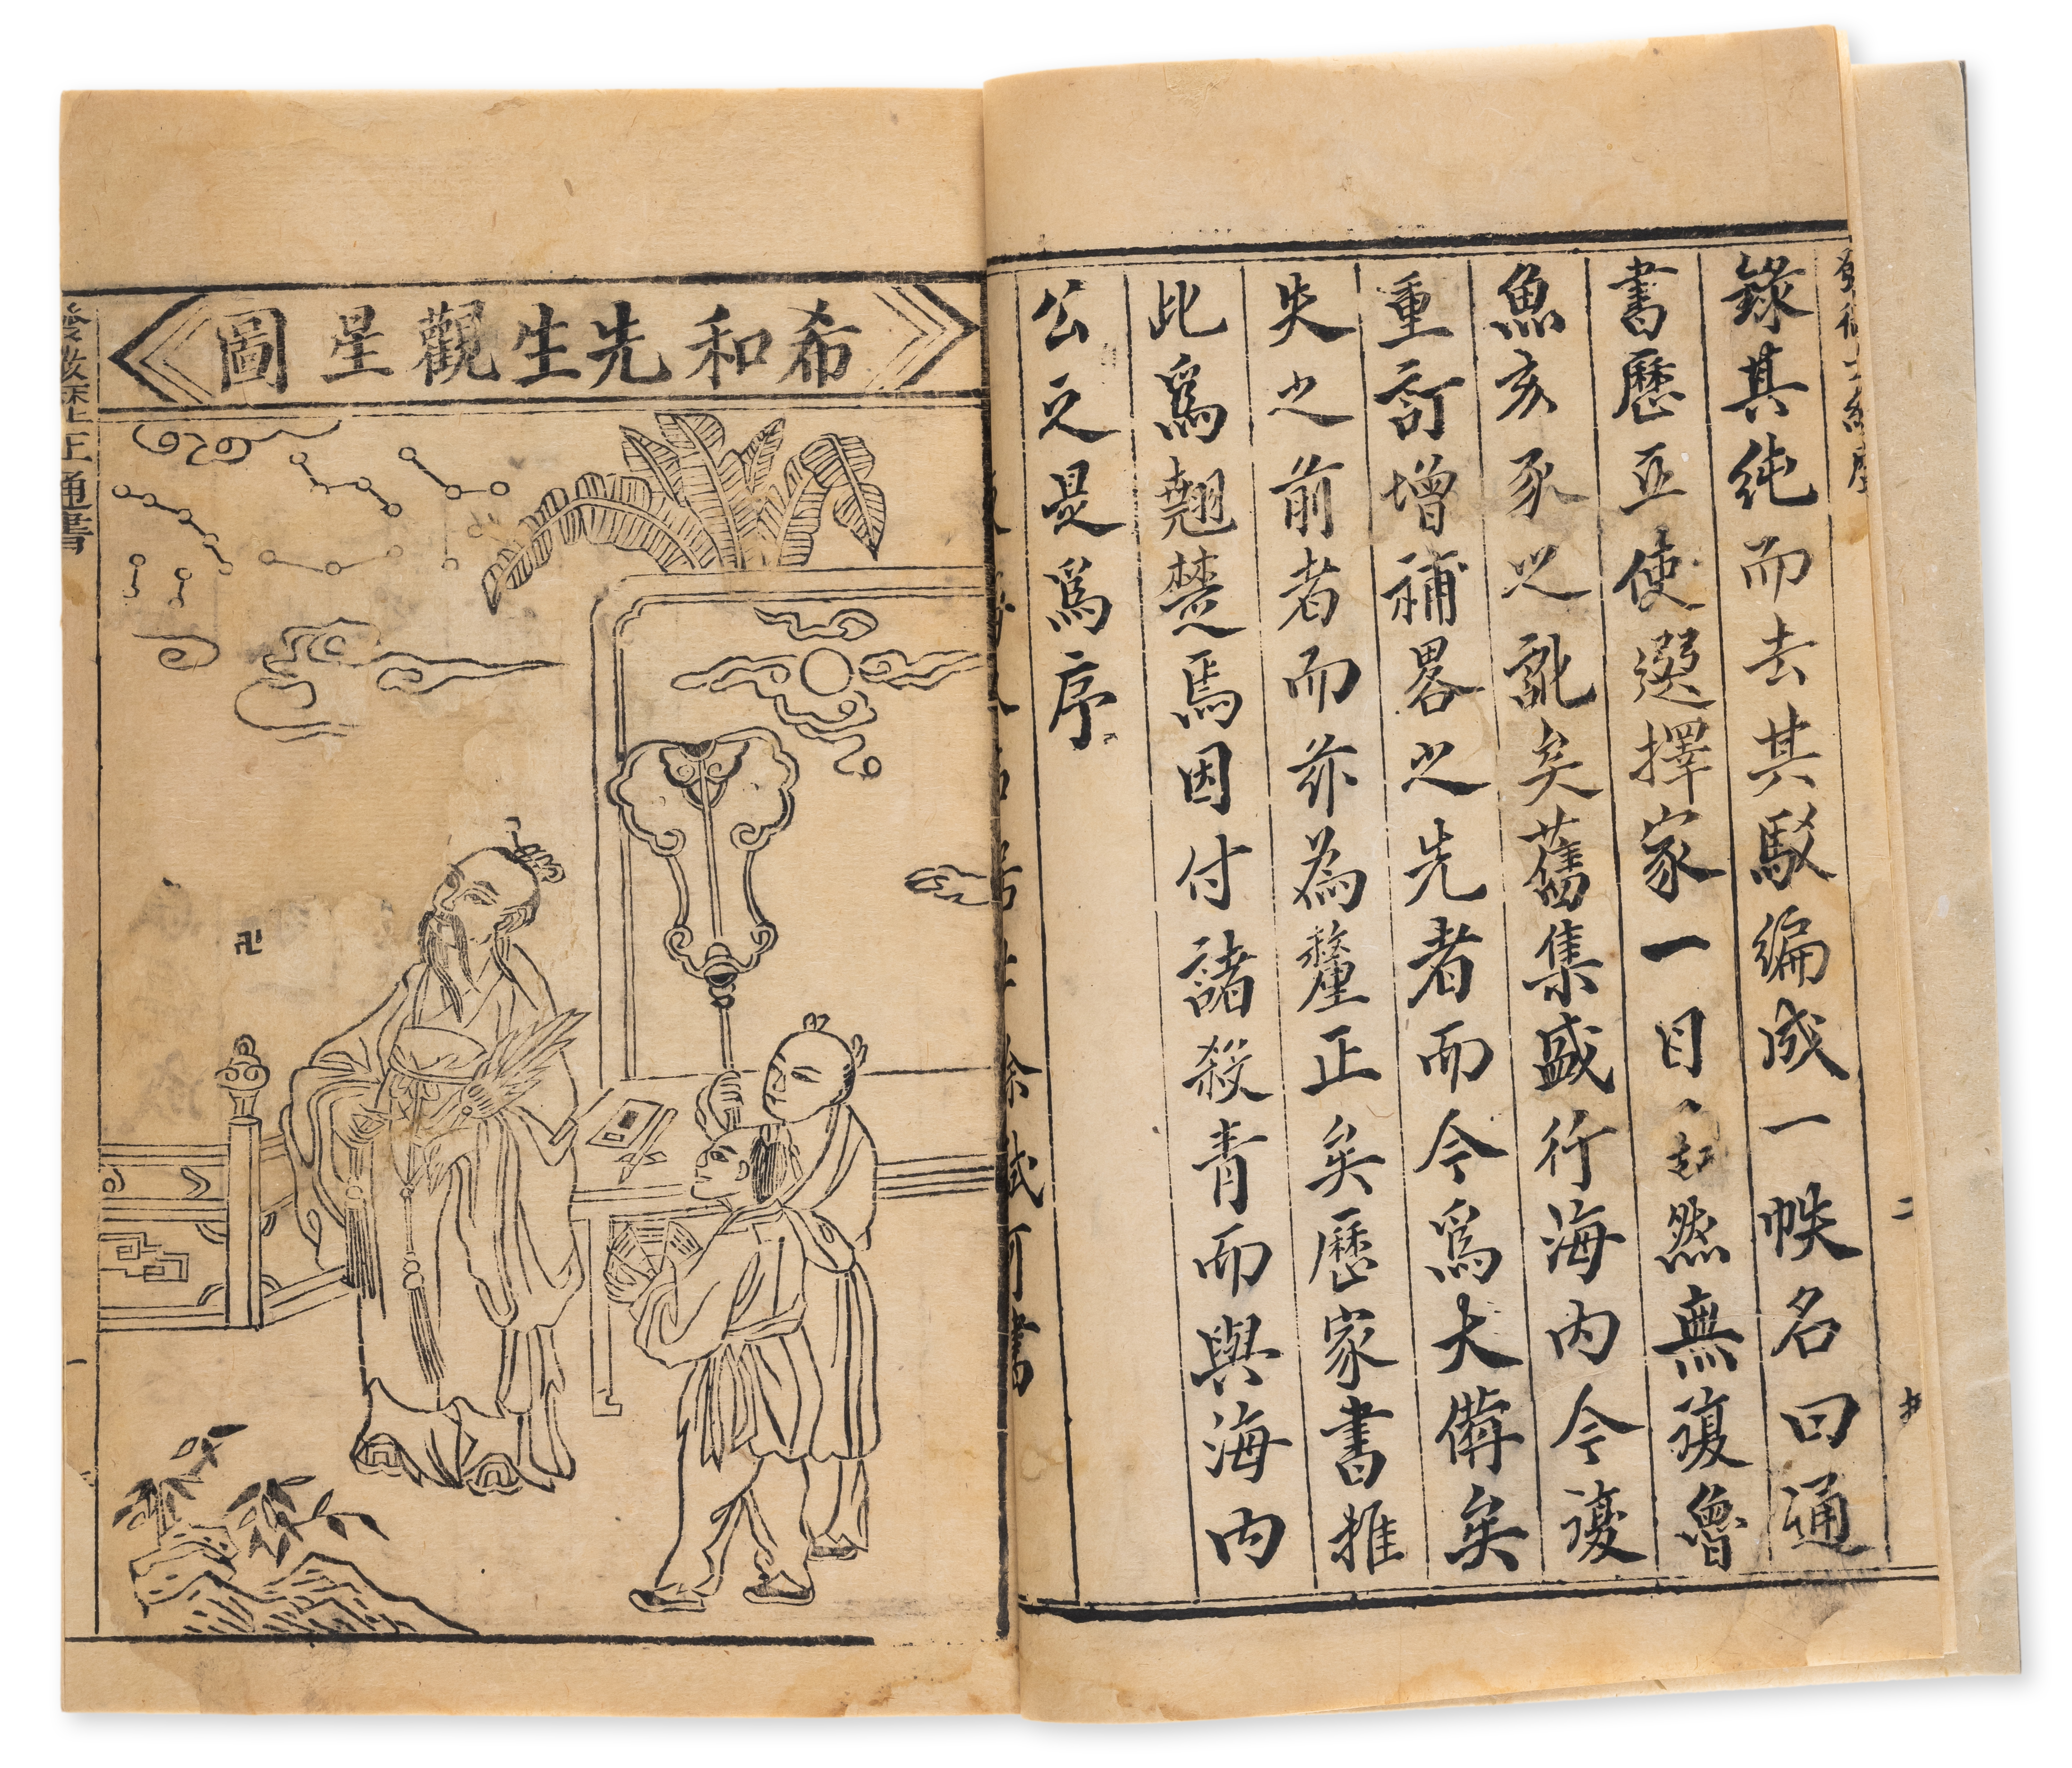 錄其純而去其駁編成一帙名曰通
書歷亚使選擇家一目然無復魯
魚亥豕之訛矣舊集盛行海内今復
重訂增補畧之先者而今爲大備矣
失之前者而茲為釐正矣歷家書推
此爲翹楚焉因付諸殺青而與海内
公之是爲序
希和先生觀星圖
卍
正通書
一
二